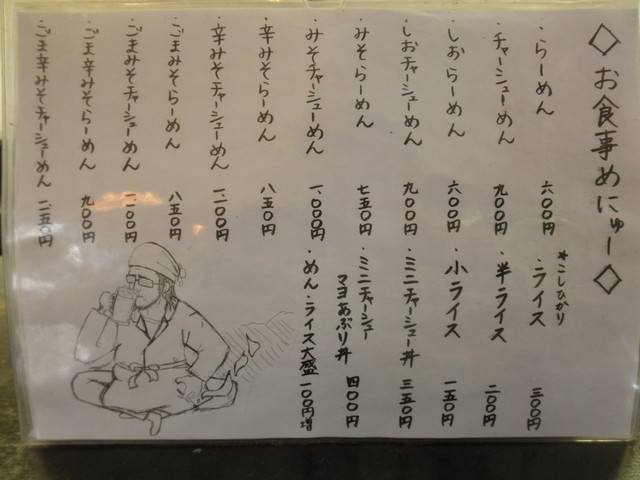 ◇お食事めにゅー◇
・らーめん 六〇〇円
・チャーシューめん 九〇〇円
・しおらーめん 六〇〇円
・しおチャーシューめん 九〇〇円
・みそらーめん 七五〇円
・みそチャーシューめん 一、〇〇〇円
・辛みそらーめん 八五〇円
・辛みそチャーシューめん 一、一〇〇円
・ごまみそらーめん 八五〇円
・ごまみそチャーシューめん 一、一〇〇円
・ごま辛みそらーめん 九〇〇円
・ごま辛みそチャーシューめん 一、一五〇円
*こしひかり
・ライス 三〇〇円
・半ライス 二〇〇円
・小ライス 一五〇円
・ミニチャーシュー丼 三五〇円
・ミニチャーシュー
マヨあぶり丼 四〇〇円
・めん・ライス大盛 一〇〇円増